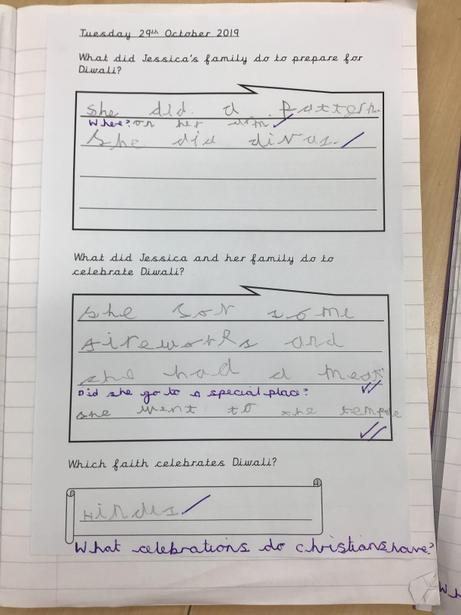 Tuesday 29th October 2019
What did Jessica's family do to prepare for
Diwali?
She did. a pattern.
Where? on her arm
She did divas.
What did Jessica and her family do to
celebrate Diwali?
she sor some
fireworks and
she had a meal
Did she go to a special place?
she went to the temple
Which faith celebrates Diwali?
Hindus
What celebrations do christians have?